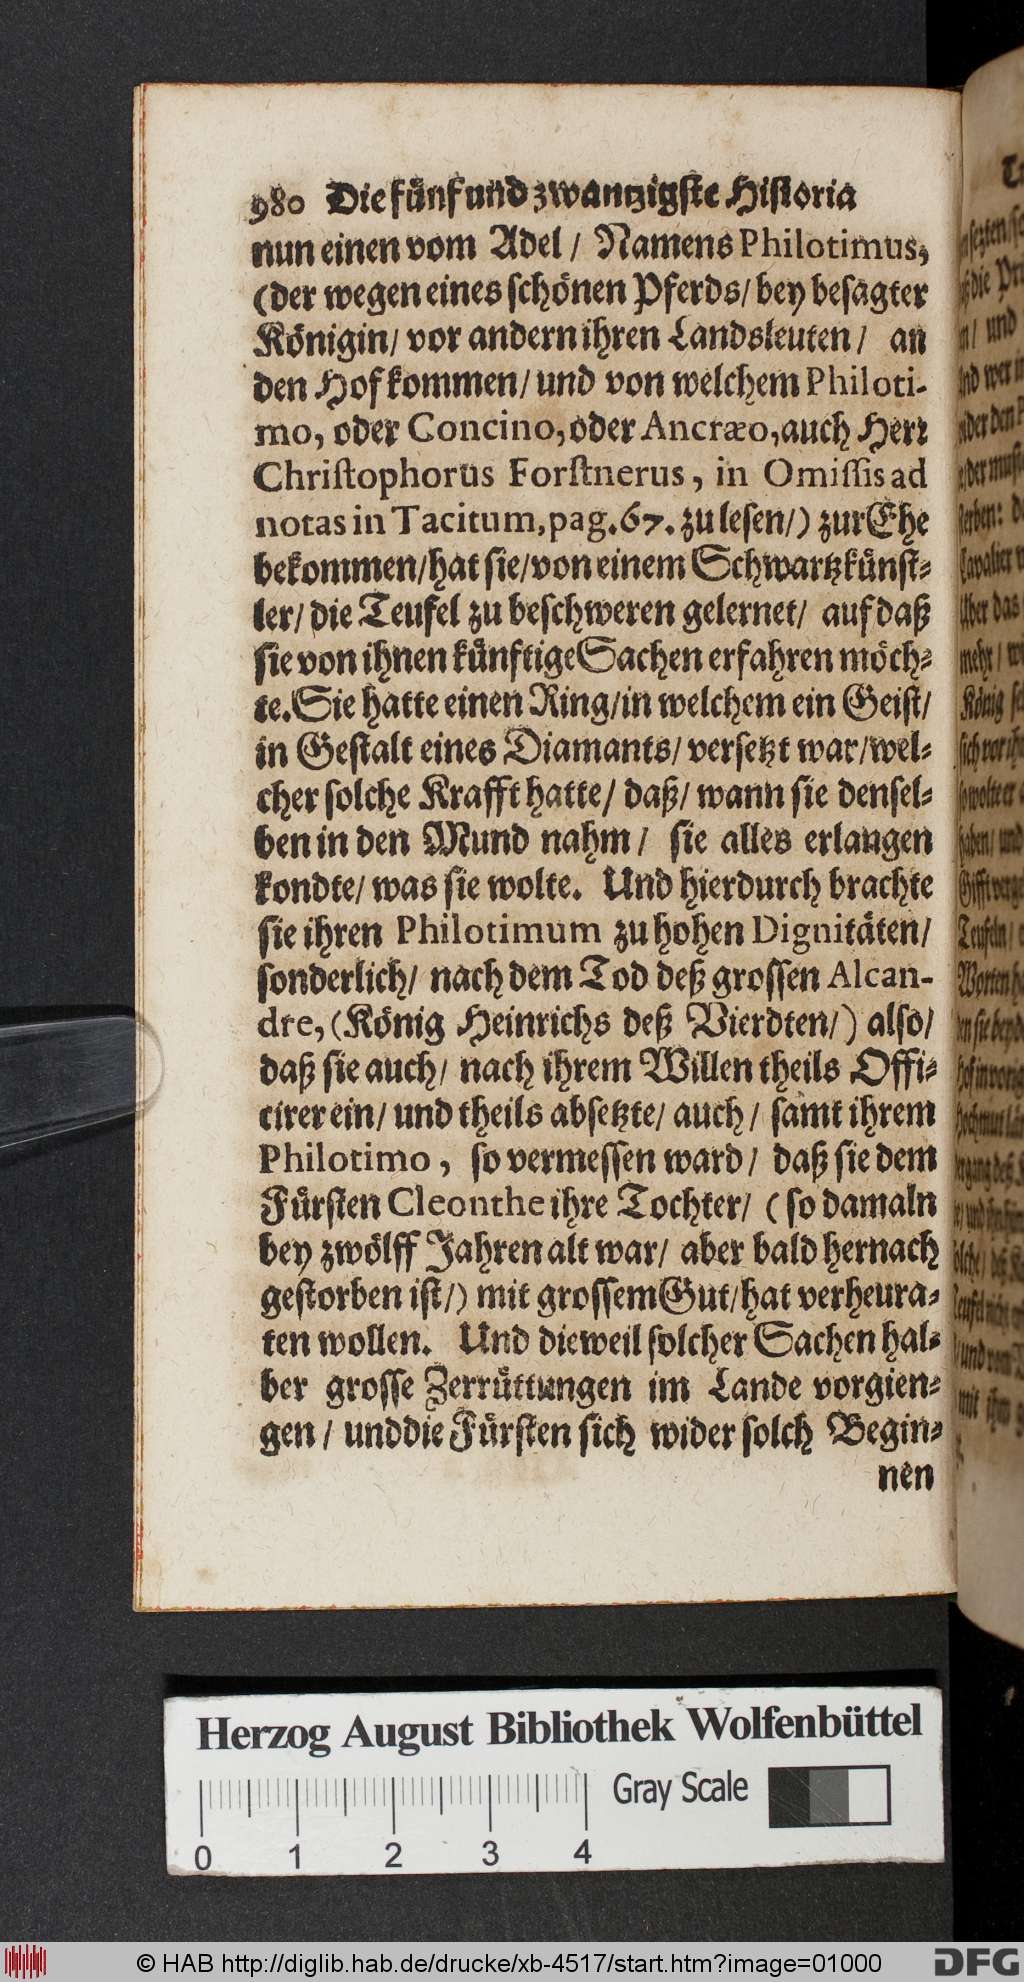 980 Die fünf und zwantzigste Historia
nun einen vom Adel / Namens Philotimus,
(der wegen eines schönen Pferds / bey besagter
Königin / vor andern ihren Landsleuten / an
den Hof kommen / und von welchem Philoti-
mo, oder Concino, oder Ancræo, auch Herr
Christophorus Forstnerus, in Omissis ad
notas in Tacitum, pag. 67. zu lesen /) zur Ehe
bekommen / hat sie / von einem Schwartzkünst-
ler / die Teufel zu beschweren gelernet / auf daß
sie von ihnen künftige Sachen erfahren möch-
te. Sie hatte einen Ring / in welchem ein Geist /
in Gestalt eines Diamants / versetzt war / wel-
cher solche Krafft hatte / daß / wann sie densel-
ben in den Mund nahm / sie alles erlangen
kondte / was sie wolte. Und hierdurch brachte
sie ihren Philotimum zu hohen Dignitäten /
sonderlich / nach dem Tod deß grossen Alcan-
dre, (König Heinrichs deß Vierdten /) also /
daß sie auch / nach ihrem Willen theils Offi-
cirer ein / und theils absetzte / auch / samt ihrem
Philotimo, so vermessen ward / daß sie dem
Fürsten Cleonthe ihre Tochter / (so damaln
bey zwölff Jahren alt war / aber bald hernach
gestorben ist /) mit grossem Gut / hat verheura-
ten wollen. Und dieweil solcher Sachen hal-
ber grosse Zerrüttungen im Lande vorgien-
gen / und die Fürsten sich wider solch Begin-
nen
Herzog August Bibliothek Wolfenbüttel
Gray Scale
0 1 2 3 4
© HAB http://diglib.hab.de/drucke/xb-4517/start.htm?image=01000
DFG